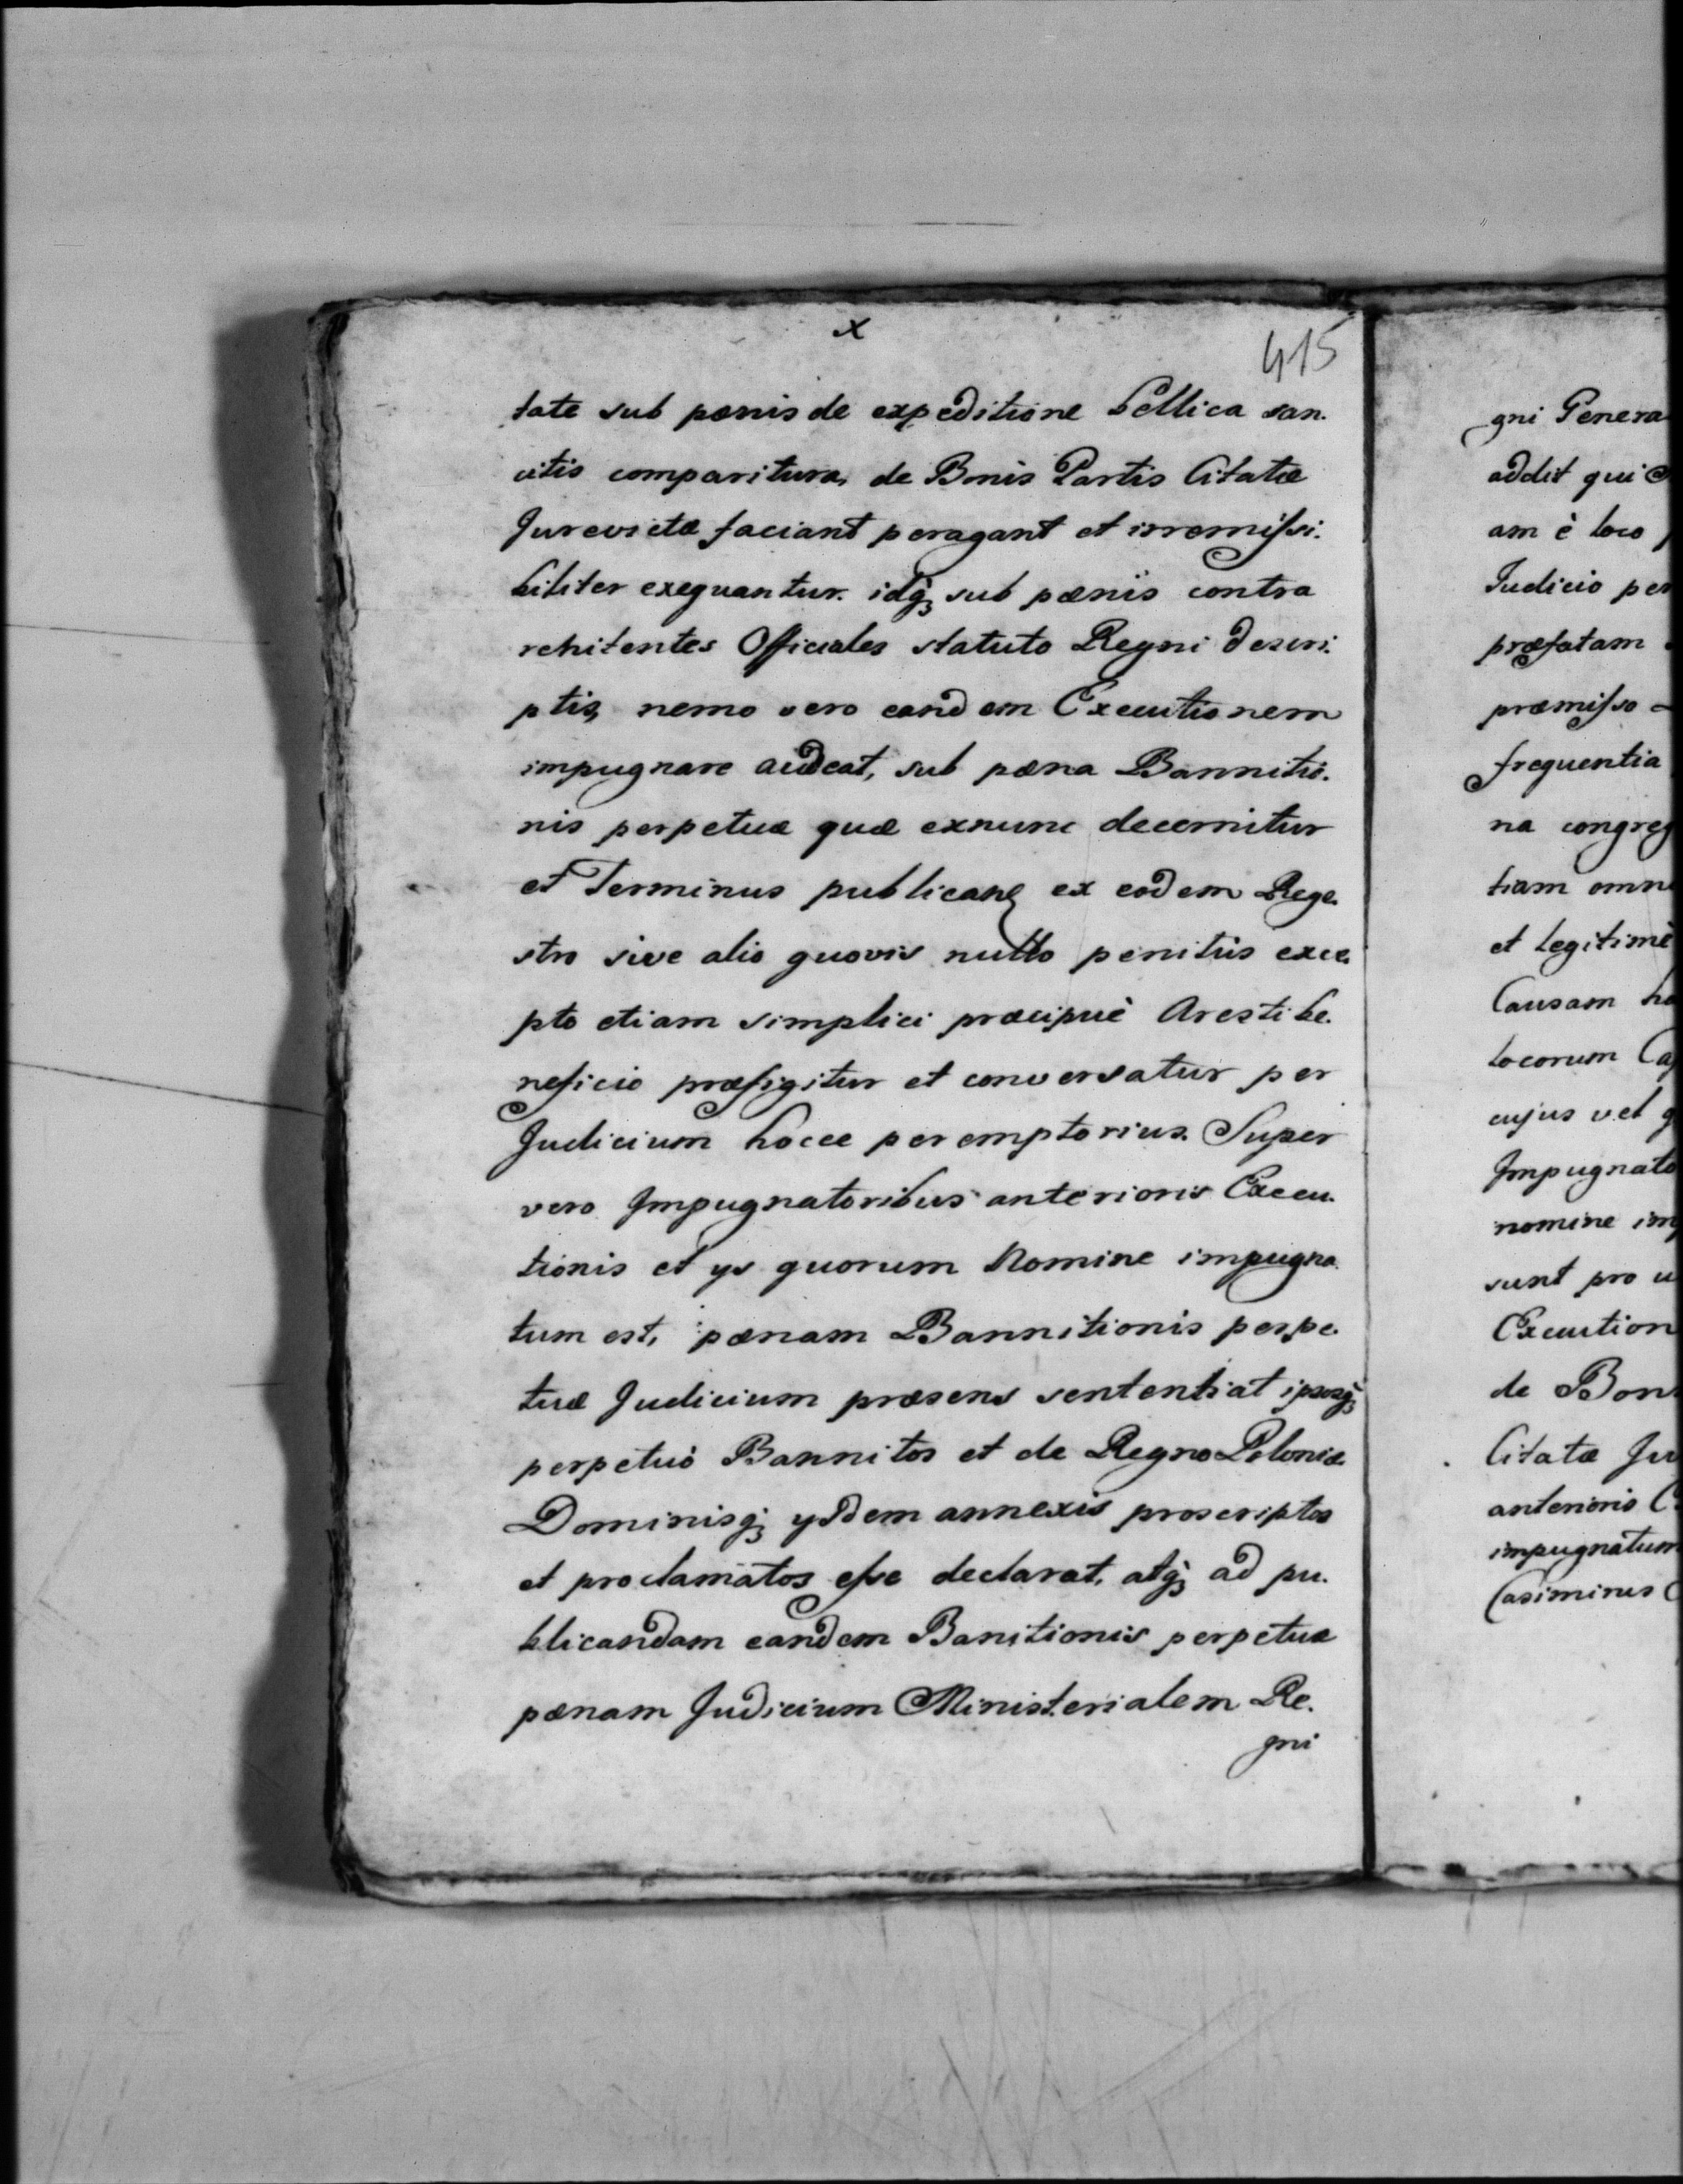 x
415
tate sub pœnis de expeditione bellica san.
citis comparitura, de Bonis Partis Citatæ
Jurevictæ faciant peragant et irremissi.
biliter exequantur. idq; sub pœnis contra
rehitentes Officiales statuto Regni descri.
ptis, nemo vero eandem Executionem
impugnare audeat, sub pœna Bannitio.
nis perpetuæ quæ exnunc decernitur
et Terminus publicanq ex eodem Rege.
stro sive alio quovis nullo penitus exce.
pto etiam simplici præcipuè Aresti be.
neficio præfigitur et conversatur per
Judicium hocce peremptorius. Super
vero Impugnatoribus anterioris Execu.
tionis et ys quorum Nomine impugna.
tum est, pœnam Bannitionis perpe.
tuæ Judicium præsens sententiat ipsosq;
perpetuò Bannitos et de Regno Poloniæ
Dominisq; ysdem annexis proscriptos
et proclamatos esse declarat, atq; ad pu.
blicandam eandem Banitionis perpetuæ
pœnam Judicium Ministerialem Re.
gni
gni Genera
addit qui
am è loco
Judicio per
præfatam
præmisso
frequentia
na congreg
tiam omn
et legitimè
Causam ha
locorum Ca
cujus vel q
Impugnato
nomine im
sunt pro u
Execution
de Bon
Citatæ Ju
anterioris
impugnatum
Casimirus